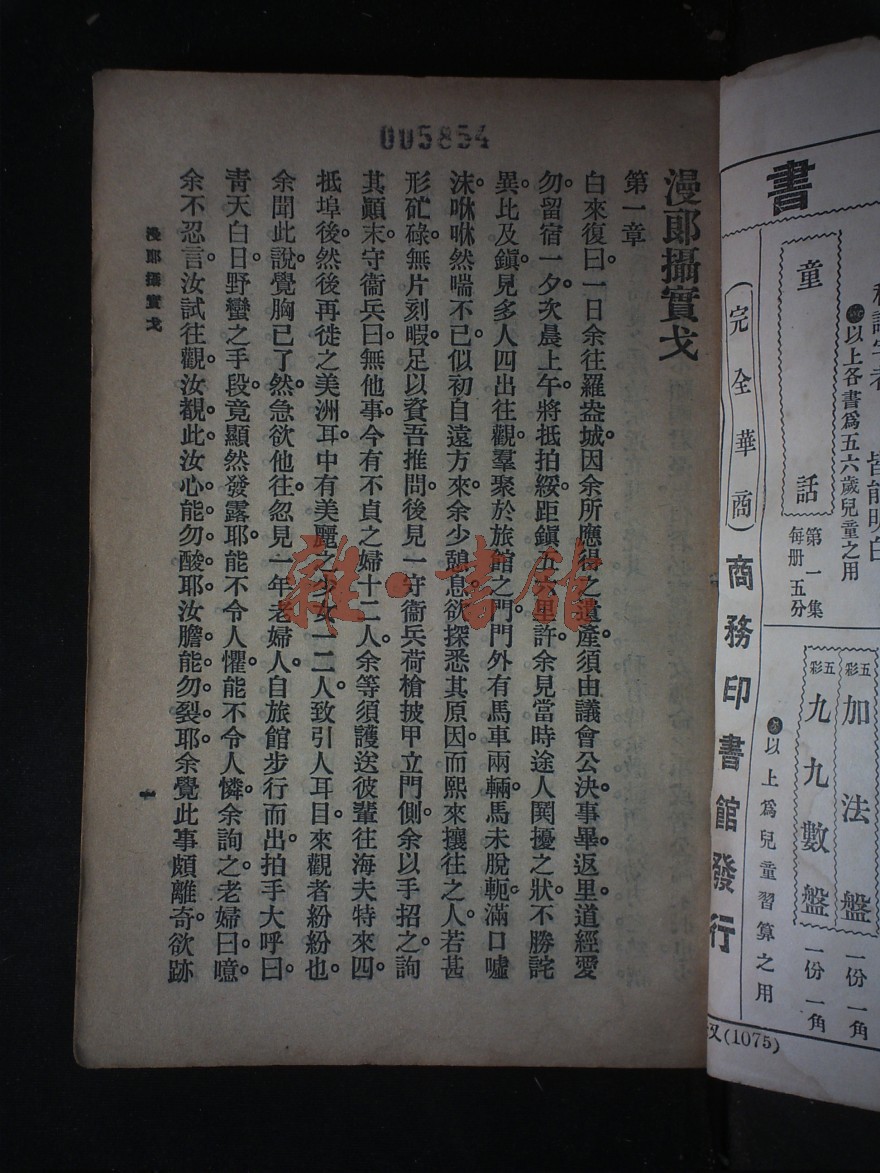 書
私認字者 皆能明白
◉以上各書爲五六歲兒童之用
童話
第一集
每册五分
完全華商
商務印書館發行
五彩
加法盤
一份一角
五彩
九九數盤
一份一角
◉以上爲兒童習算之用
(1075)
005854
漫郎攝實戈
第一章
白來復曰。一日余往羅盎城。因余所應得之遺產。須由議會公決。事畢。返里。道經愛
勿。留宿一夕。次晨上午。將抵拍綏。距鎭五六里許。余見當時途人鬨擾之狀。不勝詫
異。比及鎭。見多人四出往觀。羣聚於旅館之門。門外有馬車兩輛。馬未脫軛。滿口噓
沫。咻咻然喘不已。似初自遠方來。余少憩息。欲探悉其原因。而熙來攘往之人。若甚
形矻碌。無片刻暇。足以資吾推問。後見一守衞兵。荷槍披甲。立門側。余以手招之。詢
其顚末。守衞兵曰。無他事。今有不貞之婦十二人。余等須護送彼輩往海夫特來。四
抵埠後。然後再徙之美洲耳。中有美麗之少女一二人。致引人耳目。來觀者紛紛也。
余聞此說。覺胸已了然。急欲他往。忽見一年老婦人。自旅館步行而出。拍手大呼曰。
靑天白日。野蠻之手段。竟顯然發露耶。能不令人懼。能不令人憐。余詢之。老婦曰。噫。
余不忍言。汝試往觀。汝觀此。汝心能勿酸耶。汝膽能勿裂耶。余覺此事頗離奇。欲跡
漫郎攝實戈
一
雜·書館